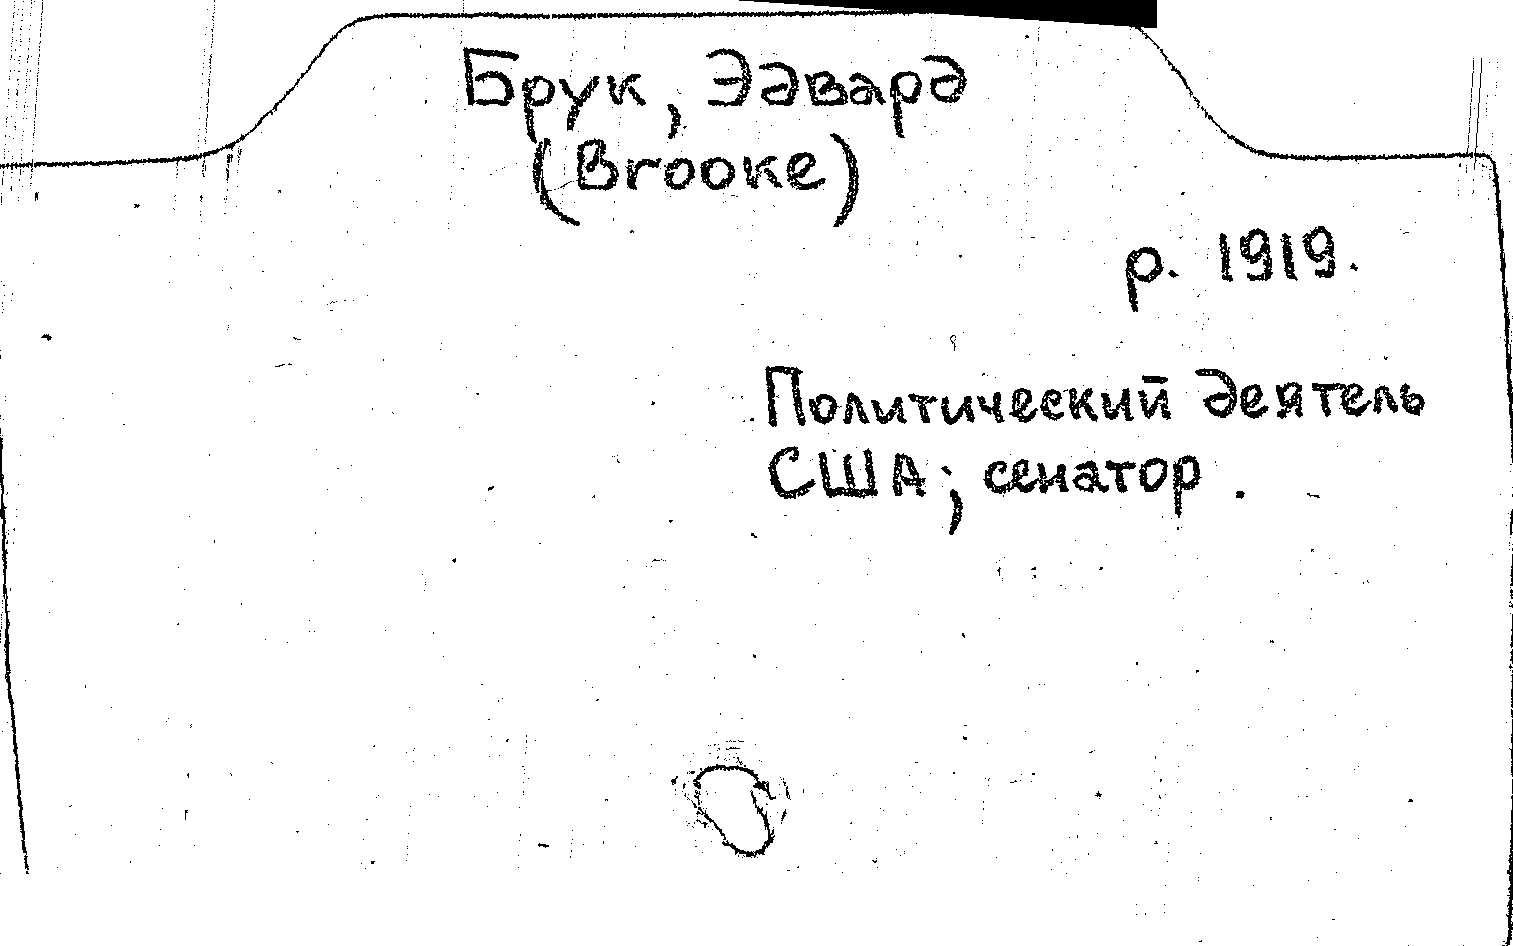 Брук, Эдвард
(Brooke)
р. 1919.
Политический деятель
США; сенатор.